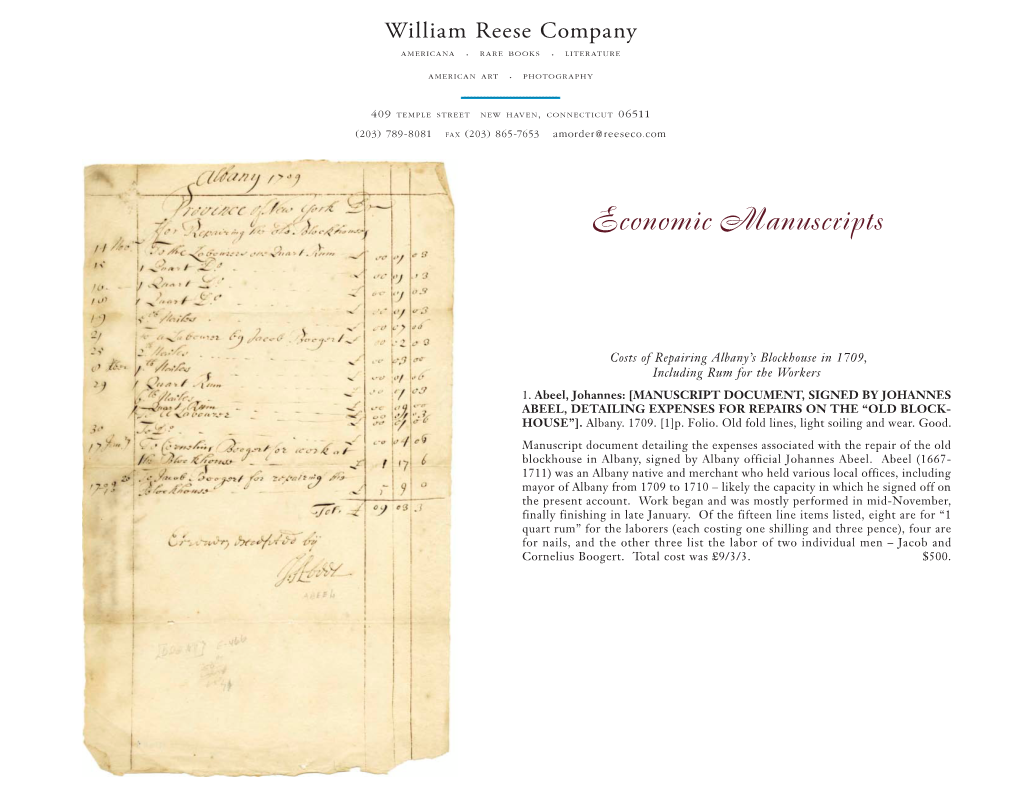 William Reese Company
AMERICANA · RARE BOOKS · LITERATURE
AMERICAN ART · PHOTOGRAPHY
409 TEMPLE STREET NEW HAVEN, CONNECTICUT 06511
(203) 789-8081 FAX (203) 865-7653 amorder@reeseco.com
Albany 1709
Province of New York Dr
for Repairing the old Blockhouse
To the Labourers one Quart Rum £ 00 01 03
1 Quart Do £ 00 01 03
1 Quart Do £ 00 01 03
1 Quart Do £ 00 01 03
Nailes £ 00 07 06
a Labourer by Jacob Boogert £
Nailes £ 00 03 00
Nailes £ 00 01 06
29 1 Quart Rum 00 01 03
Nailes
Quart Rum
Labourer
30 To Do 00 04 06
To Cornelius Boogert for work at
the Blockhouse £ 1 17 6
To Jacob Boogert for repairing the
Blockhouse £ 5 9 0
Tot. £ 09 03 3
Errours excepted by
JAbeel
Economic Manuscripts
Costs of Repairing Albany’s Blockhouse in 1709,
Including Rum for the Workers
1. Abeel, Johannes: [MANUSCRIPT DOCUMENT, SIGNED BY JOHANNES
ABEEL, DETAILING EXPENSES FOR REPAIRS ON THE “OLD BLOCK-
HOUSE”]. Albany. 1709. [1]p. Folio. Old fold lines, light soiling and wear. Good.
Manuscript document detailing the expenses associated with the repair of the old
blockhouse in Albany, signed by Albany official Johannes Abeel. Abeel (1667-
1711) was an Albany native and merchant who held various local offices, including
mayor of Albany from 1709 to 1710 – likely the capacity in which he signed off on
the present account. Work began and was mostly performed in mid-November,
finally finishing in late January. Of the fifteen line items listed, eight are for “1
quart rum” for the laborers (each costing one shilling and three pence), four are
for nails, and the other three list the labor of two individual men – Jacob and
Cornelius Boogert. Total cost was £9/3/3. $500.